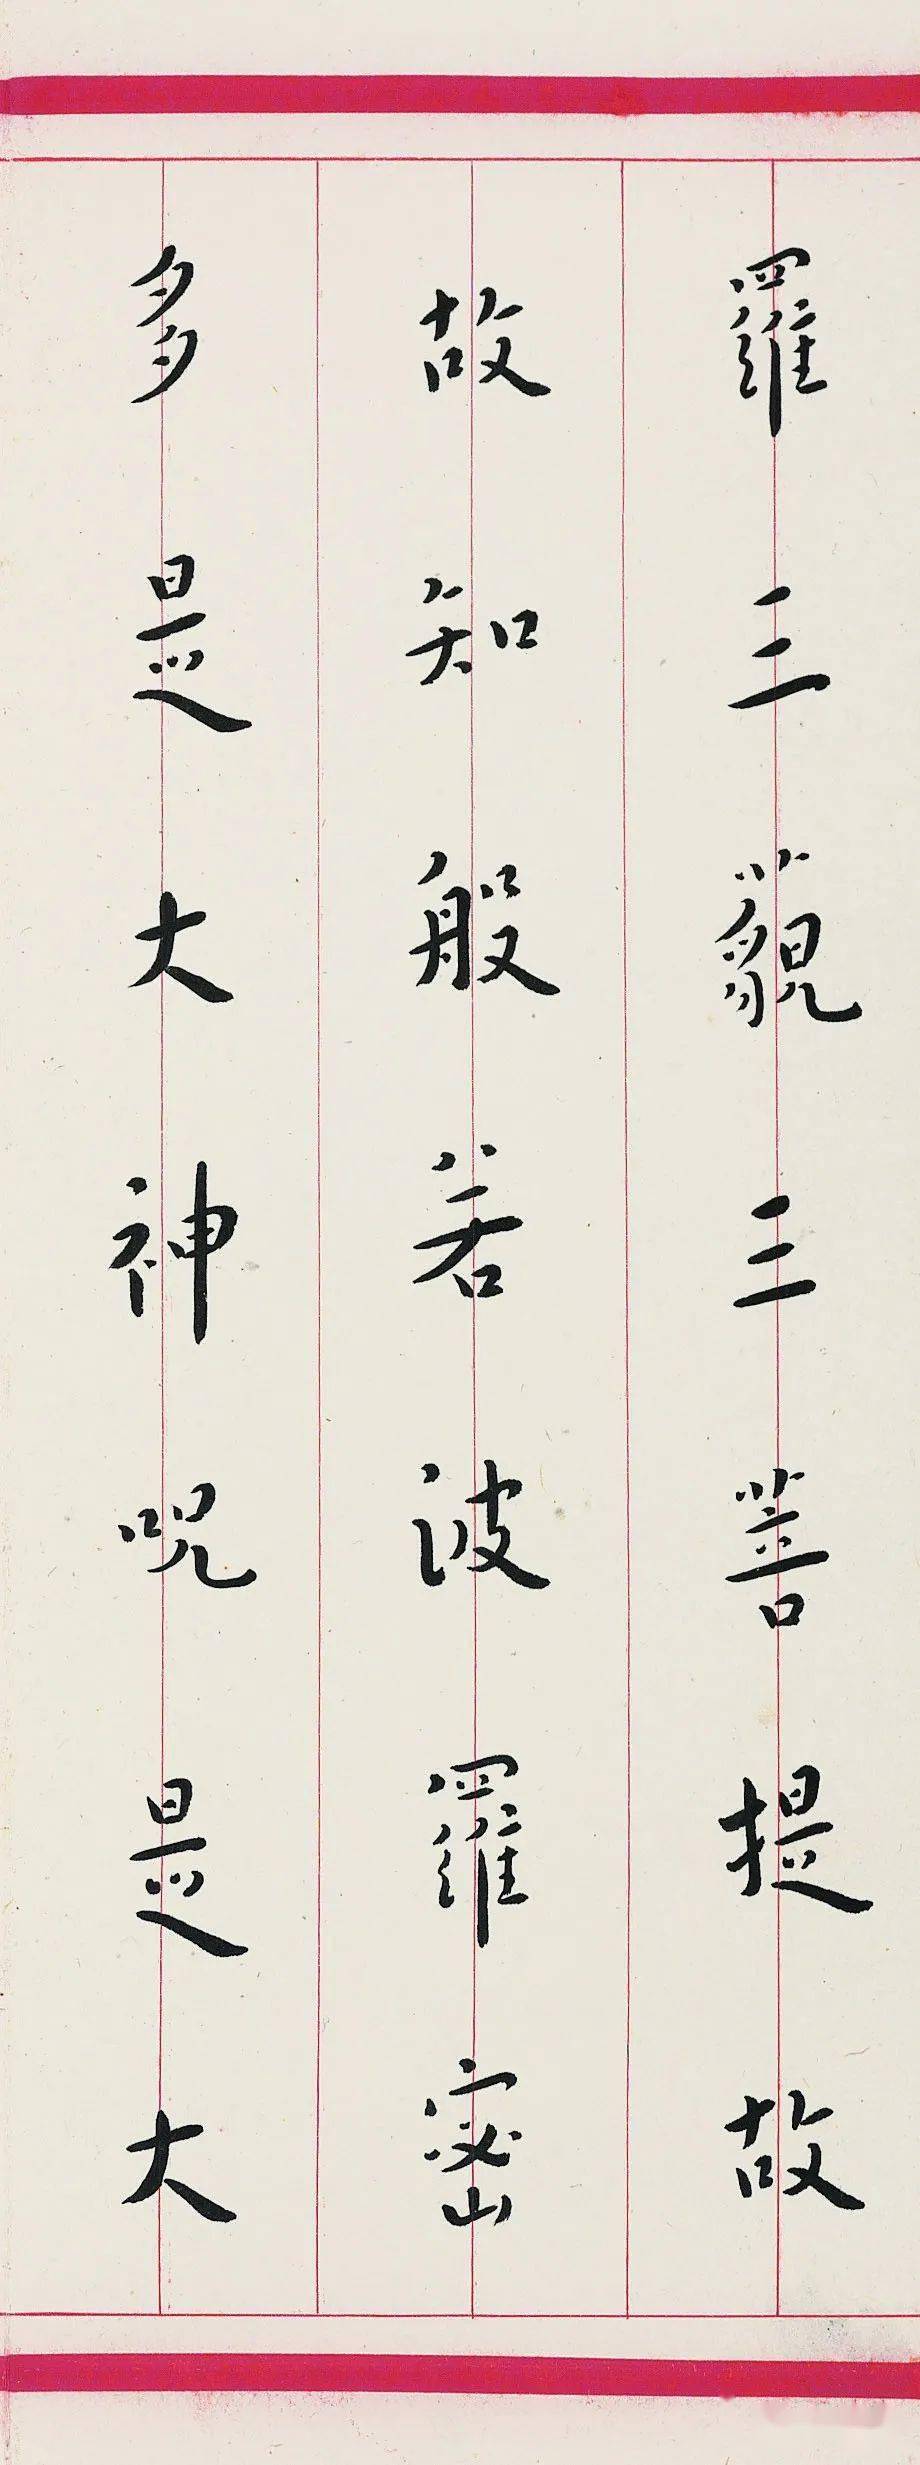 羅三藐三菩提故
故知般若波羅密
多是大神咒是大